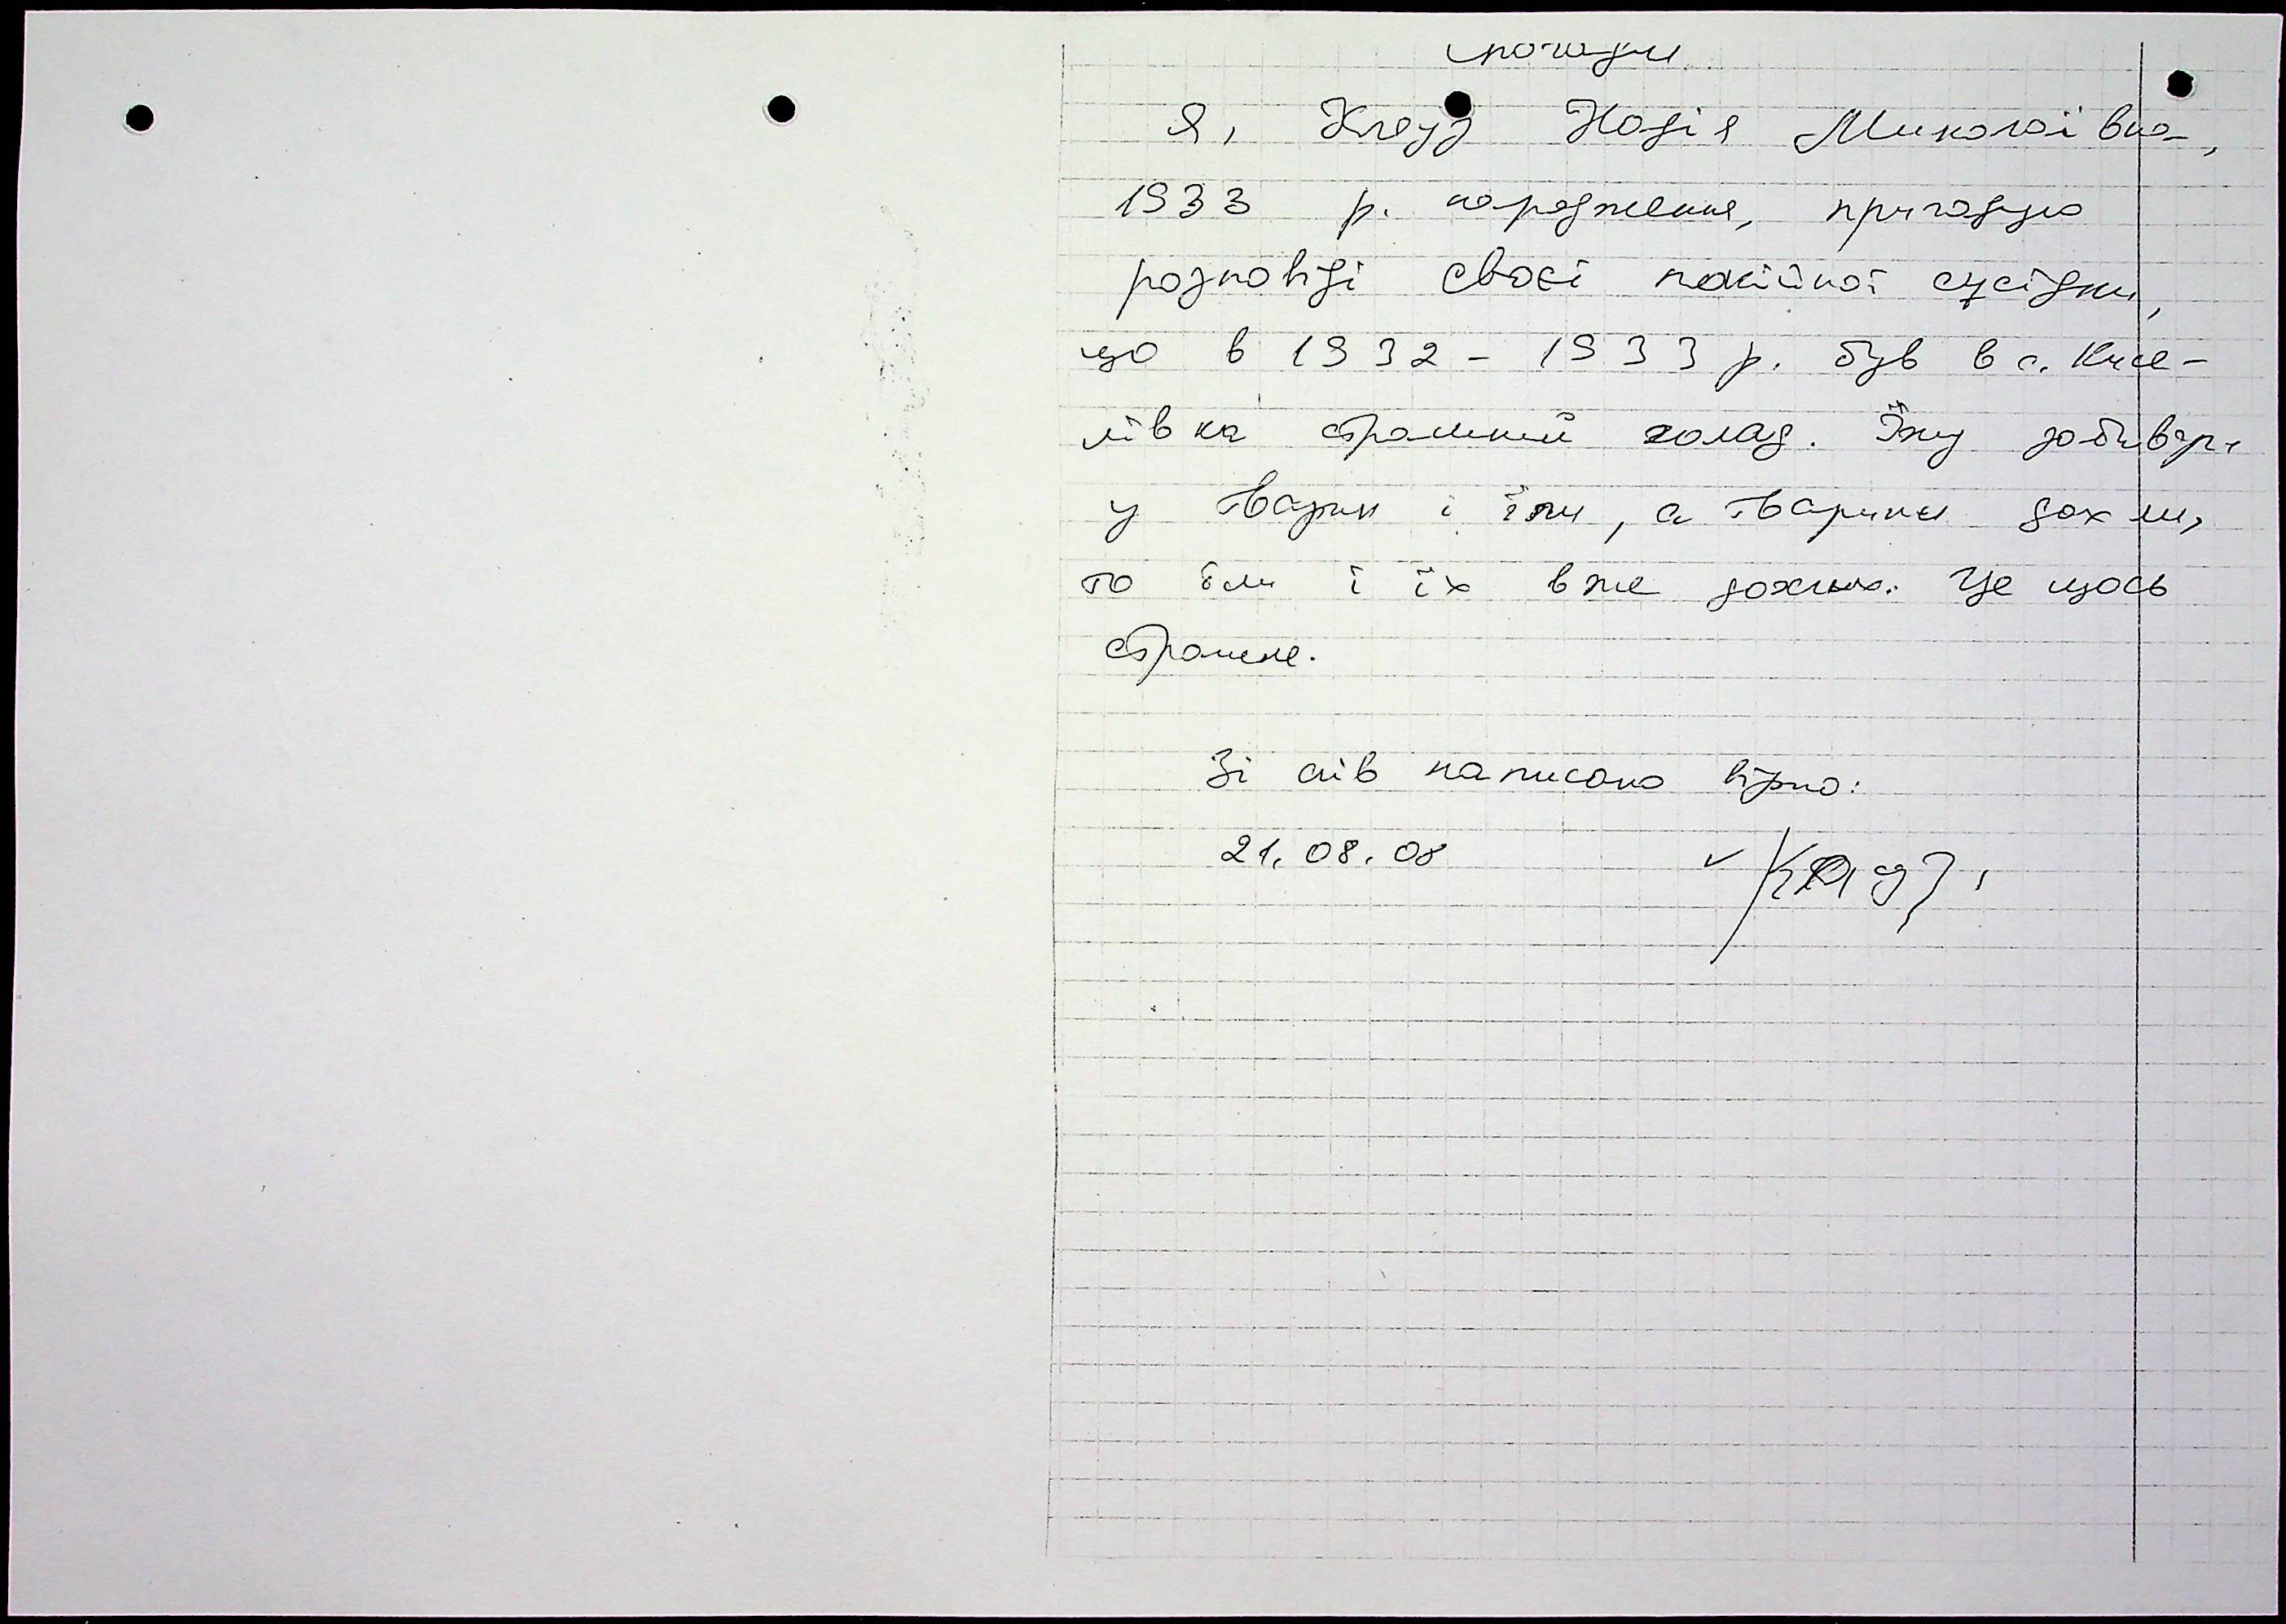 спогади
Я, Кледз Надія Миколаївна,
1933 р. народження, пригадую
розповіді своєї покійної сусідки,
що в 1932 - 1933 р. був в с. Кисе-
лівка страшний голод. Їжу забирали
у тварин і їли, а тварини дохли,
то їли і їх вже дохлих. Це щось
страшне.
Зі слів написано вірно:
21.08.08